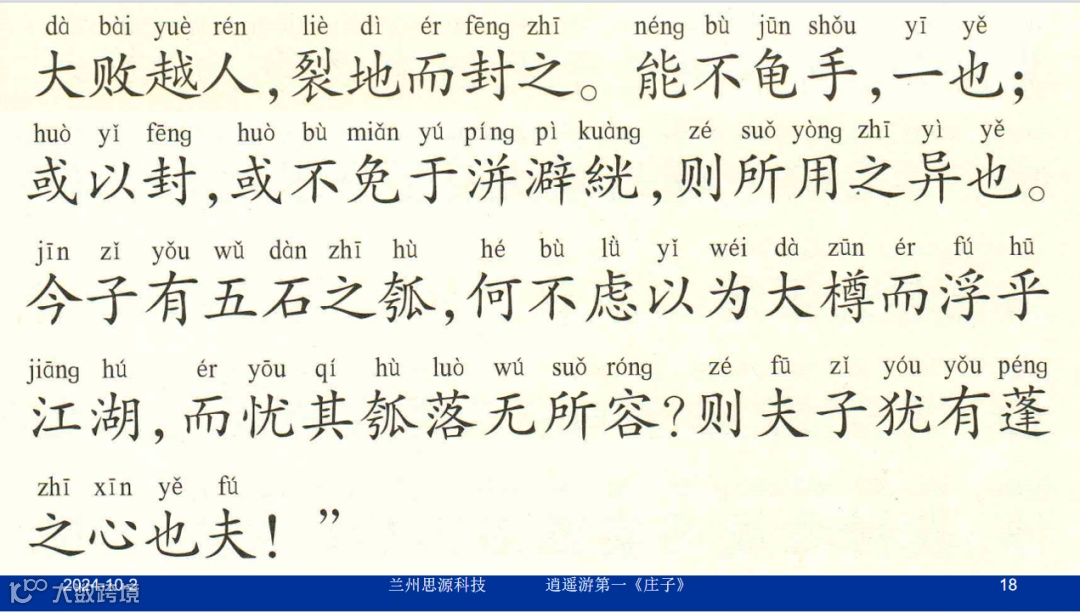 dà bài yuè rén liè dì ér fēng zhī néng bù jūn shǒu yī yě
大败越人,裂地而封之。能不龟手,一也;
huò yǐ fēng huò bù miǎn yú píng pì kuàng zé suǒ yòng zhī yì yě
或以封,或不免于洴澼絖,则所用之异也。
jīn zǐ yǒu wǔ dàn zhī hù hé bù lǜ yǐ wéi dà zūn ér fú hū
今子有五石之瓠,何不虑以为大樽而浮乎
jiāng hú ér yōu qí hù luò wú suǒ róng zé fū zǐ yóu yǒu péng
江湖,而忧其瓠落无所容?则夫子犹有蓬
zhī xīn yě fú
之心也夫!”
2024-10-2 兰州思源科技 逍遥游第一《庄子》 18
大数跨境